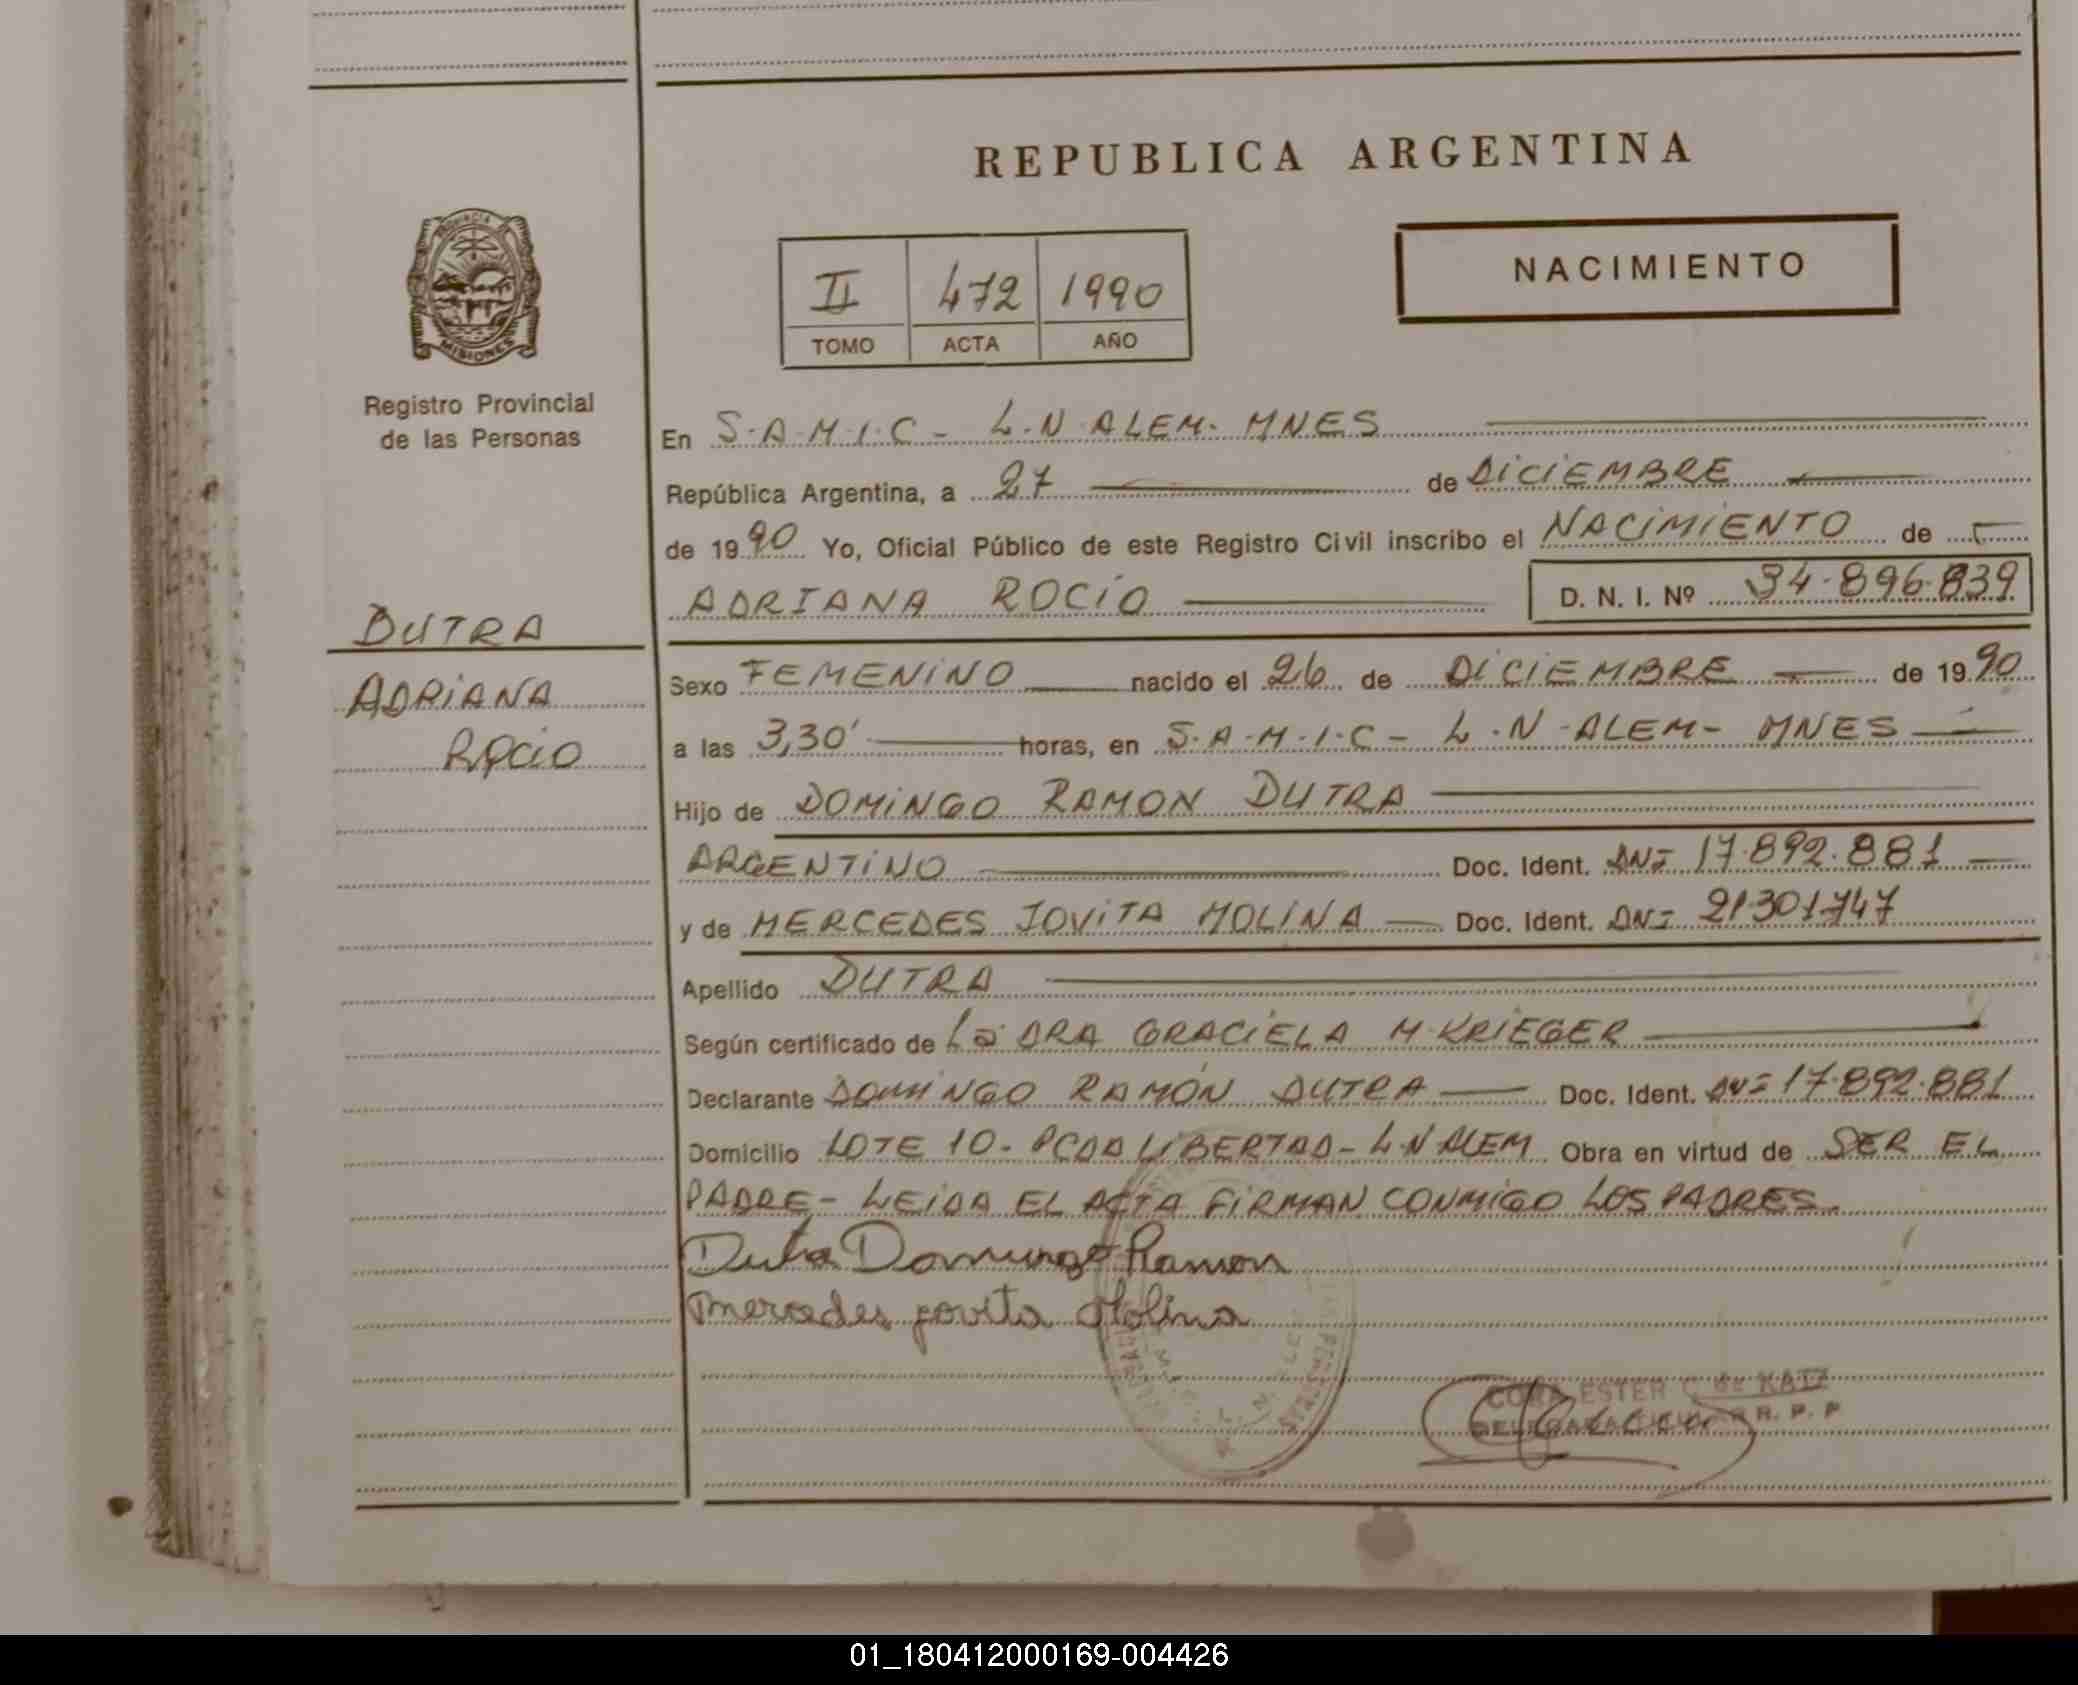 REPUBLICA ARGENTINA
PROVINCIA
MISIONES
Registro Provincial
de las Personas
II 472 1990
TOMO ACTA AÑO
NACIMIENTO
En S.A.M.I.C - L.N.ALEM. MNES
República Argentina, a 27 de DICIEMBRE
de 1990 Yo, Oficial Público de este Registro Civil inscribo el NACIMIENTO de
ADRIANA ROCIO D. N. I. Nº 34.896.839
DUTRA
ADRIANA
ROCIO
Sexo FEMENINO nacido el 26 de DICIEMBRE de 1990
a las 3,30' horas, en S.A.M.I.C - L.N.ALEM- MNES
Hijo de DOMINGO RAMON DUTRA
ARGENTINO Doc. Ident. DNI 17.892.881
y de MERCEDES JOVITA MOLINA Doc. Ident. DNI 21.301.747
Apellido DUTRA
Según certificado de La DRA GRACIELA M.KRIEGER
Declarante DOMINGO RAMÓN DUTRA Doc. Ident. DNI 17.892.881
Domicilio LOTE 10- PCDA LIBERTAD- L.N ALEM Obra en virtud de SER EL
PADRE- LEIDA EL ACTA FIRMAN CONMIGO LOS PADRES.
Dutra Domingo Ramon
Mercedes jovita Molina
ESTER C. de KATZ
R. P. P
01_180412000169-004426